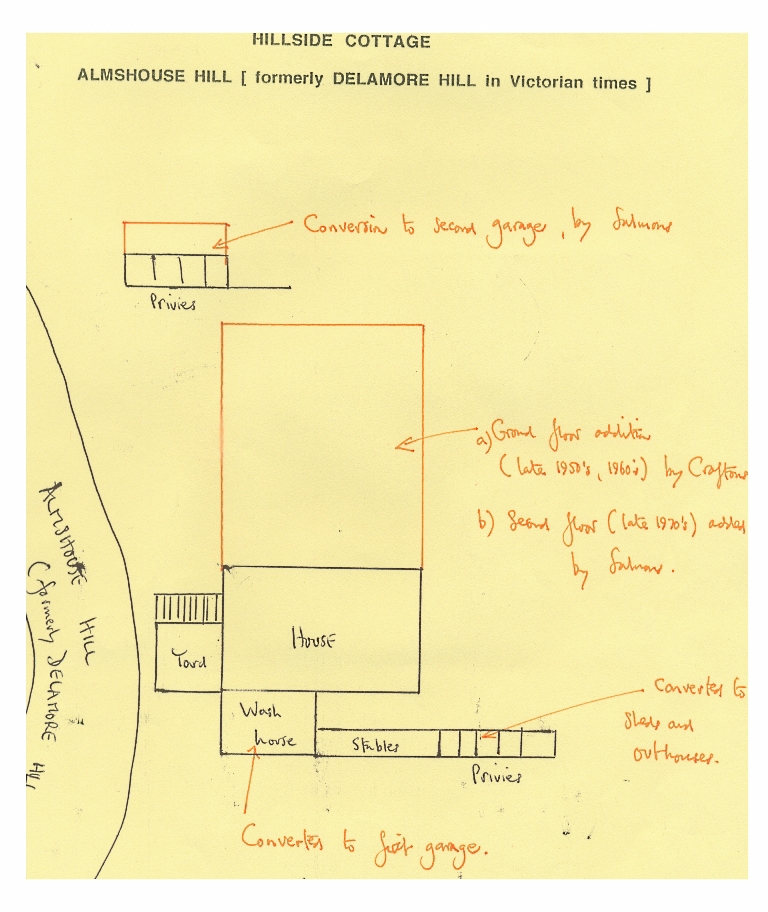 HILLSIDE COTTAGE
ALMSHOUSE HILL [ formerly DELAMORE HILL in Victorian times ]
Conversion to second garage, by Salmons
Privies
a) Ground floor addition
(late 1950's, 1960's) by Craftons
b) Second floor (late 1970's) added
by Salmons.
ALMSHOUSE HILL
(formerly DELAMORE HILL
House
Yard
Wash
house
Stables
Privies
Converted to
sheds and
outhouses.
Converted to first garage.